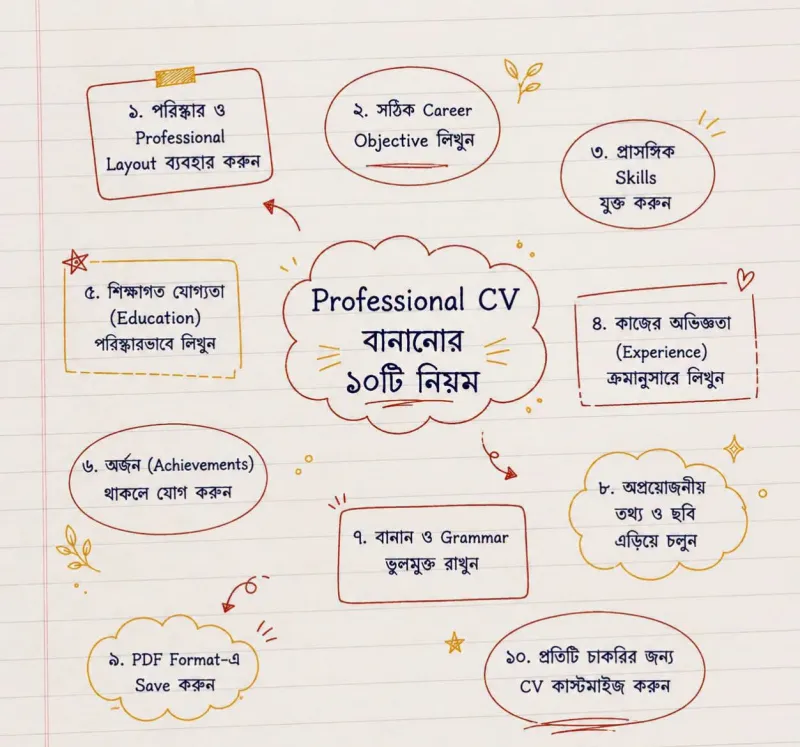 ১. পরিষ্কার ও
Professional
Layout ব্যবহার করুন
২. সঠিক Career
Objective লিখুন
৩. প্রাসঙ্গিক
Skills
যুক্ত করুন
Professional CV
বানানোর
১০টি নিয়ম
৫. শিক্ষাগত যোগ্যতা
(Education)
পরিষ্কারভাবে লিখুন
৪. কাজের অভিজ্ঞতা
(Experience)
ক্রমানুসারে লিখুন
৬. অর্জন (Achievements)
থাকলে যোগ করুন
৭. বানান ও Grammar
ভুলমুক্ত রাখুন
৮. অপ্রয়োজনীয়
তথ্য ও ছবি
এড়িয়ে চলুন
৯. PDF Format-এ
Save করুন
১০. প্রতিটি চাকরির জন্য
CV কাস্টমাইজ করুন